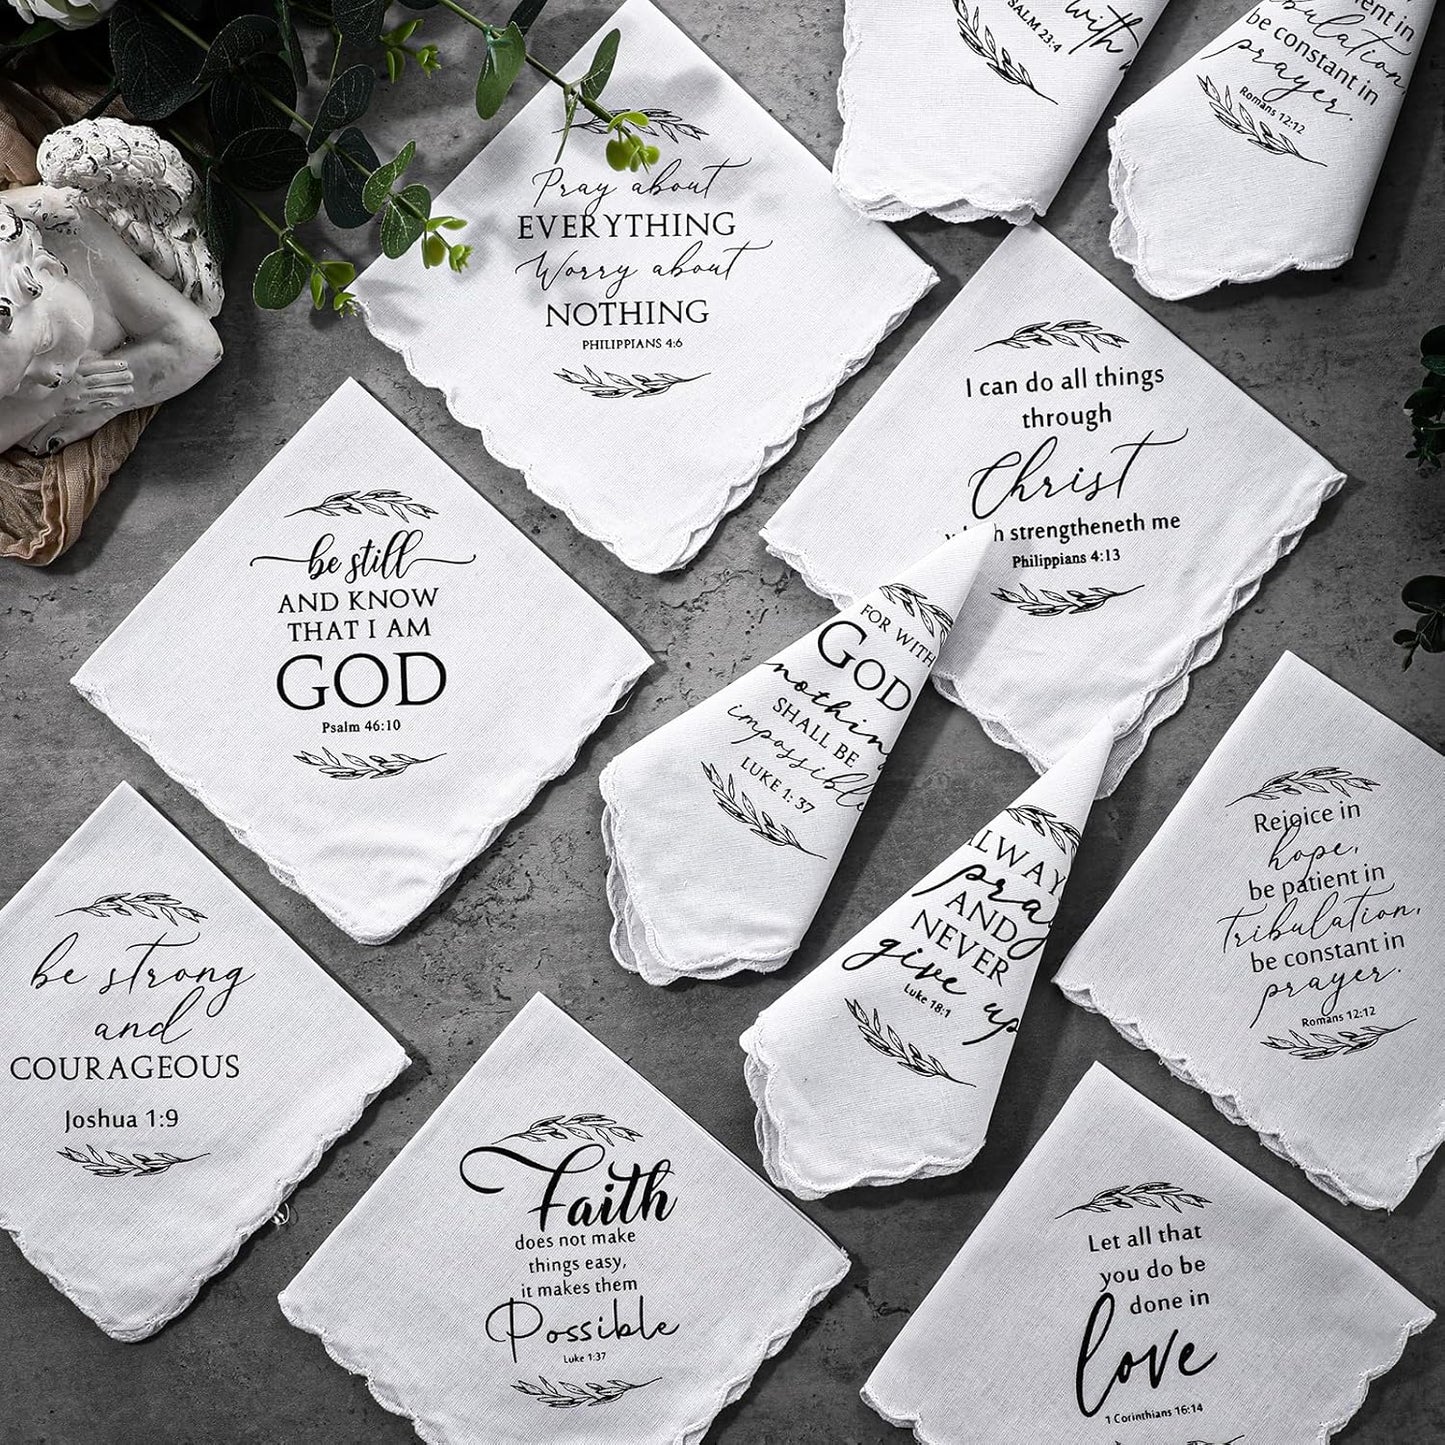 PSALM 23:4
with
be constant in
prayer.
Romans 12:12
Pray about
EVERYTHING
Worry about
NOTHING
PHILIPPIANS 4:6
I can do all things
through
Christ
strengtheneth me
Philippians 4:13
be still
AND KNOW
THAT I AM
GOD
Psalm 46:10
FOR WITH
GOD
nothing
SHALL BE
impossible
LUKE 1:37
ALWAYS
pray
AND
NEVER
give up
Luke 18:1
Rejoice in
hope,
be patient in
tribulation,
be constant in
prayer.
Romans 12:12
be strong
and
COURAGEOUS
Joshua 1:9
Faith
does not make
things easy,
it makes them
Possible
Luke 1:37
Let all that
you do be
done in
love
1 Corinthians 16:14